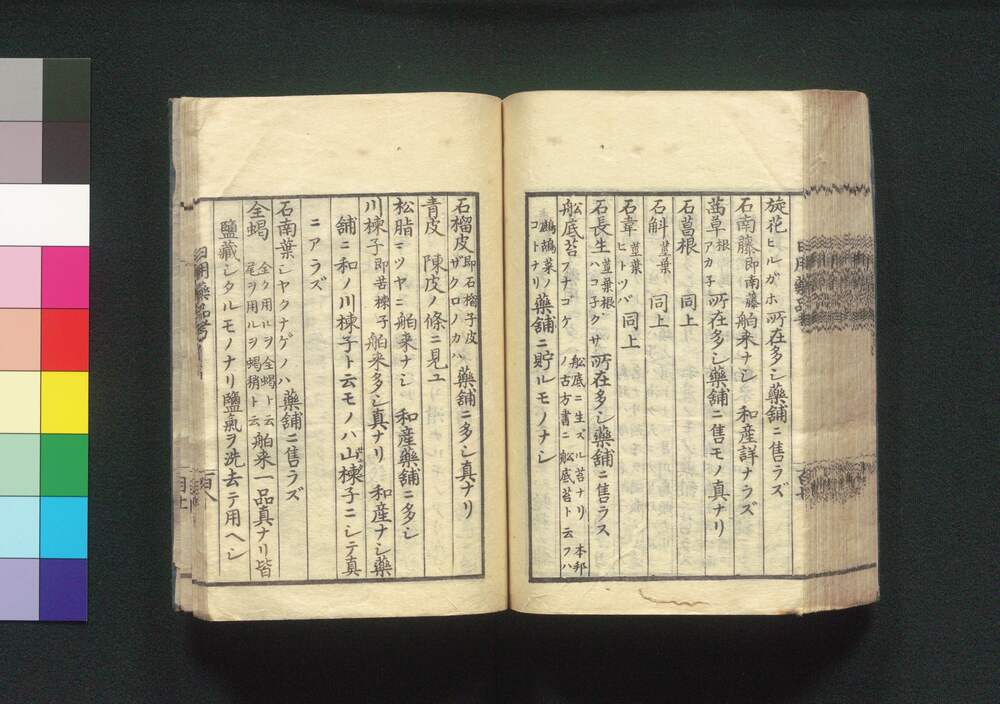 旋花ヒルガホ所在多シ藥舗ニ售ラズ
石南藤即南藤舶来ナシ 和産詳ナラズ
茜草根アカ子所在多シ藥舗ニ售モノ真ナリ
石菖根 同上
石斛莖葉 同上
石韋莖葉ヒトツバ同上
石長生莖葉根ハコ子グサ所在多シ藥舗ニ售ラス
舩底苔フナゴケ 舩底ニ生ズル苔ナリ 本邦ノ古方書ニ舩底苔ト云フハ
鷓鴣菜ノコトナリ藥舗ニ貯ルモノナシ
石榴皮即石榴子皮ザクロノカハ藥舗ニ多シ真ナリ
青皮 陳皮ノ條ニ見ユ
松脂マツヤニ舶来ナシ 和産藥舗ニ多シ
川楝子即苦楝子舶来多シ真ナリ 和産ナシ藥
舗ニ和ノ川楝子ト云モノハ山楝子ニシテ真
ニアラズ
石南葉シヤクナゲノハ藥舗ニ售ラズ
全蝎全ク用ルヲ全蝎ト云尾ヲ用ルヲ蝎稍ト云舶来一品真ナリ皆
鹽藏シタルモノナリ鹽氣ヲ洗去テ用ヘシ
日用藥品考
百八